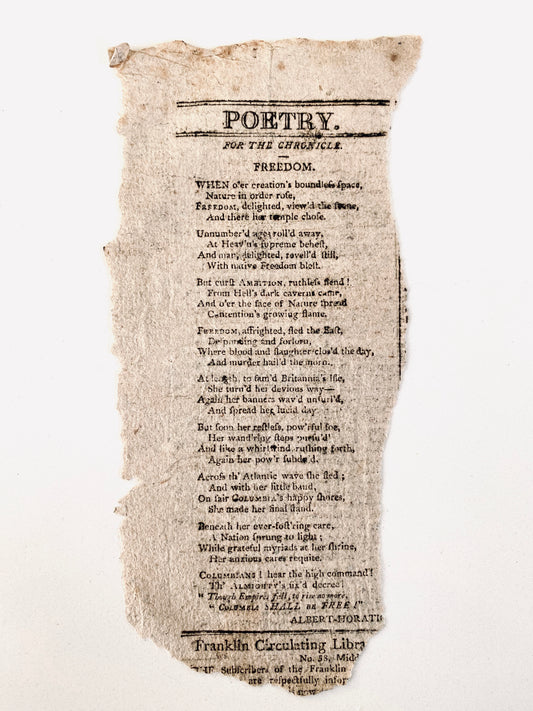 POETRY.
FOR THE CHRONICLE.
FREEDOM.
WHEN o'er creation's boundleſs ſpace,
Nature in order roſe,
FREEDOM, delighted, view'd the ſcene,
And there her temple choſe.
Unnumber'd ages roll'd away,
At Heav'n's ſupreme beheſt,
And man, delighted, revell'd ſtill,
With native Freedom bleſt.
But curſt AMBITION, ruthleſs fiend!
From Hell's dark caverns came,
And o'er the face of Nature ſpread
Contention's growing flame.
FREEDOM, affrighted, fled the Eaſt,
Deſponding and forlorn,
Where blood and ſlaughter clos'd the day,
And murder hail'd the morn.
At length, to fam'd Britannia's Iſle,
She turn'd her devious way—
Again her banners wav'd unfurl'd,
And ſpread her lucid day
But ſoon her reſtleſs, pow'rful foe,
Her wand'ring ſteps purſu'd
And like a whirlwind ruſhing forth,
Again her pow'r ſubdu'd.
Acroſs th' Atlantic wave ſhe fled;
And with her little band,
On fair COLUMBIA's happy ſhores,
She made her final ſtand.
Beneath her ever-foſt'ring care,
A Nation ſprung to light;
While grateful myriads at her ſhrine,
Her anxious cares requite.
COLUMBIANS! hear the high command!
Th' ALMIGHTY's fix'd decree!
"Though Empires fall, to riſe no more,
"COLUMBIA SHALL BE FREE!"
ALBERT-HORATI
Franklin Circulating Libra
No. 58, Midd
THE Subſcribers of the Franklin
are reſpectfully infor
is now